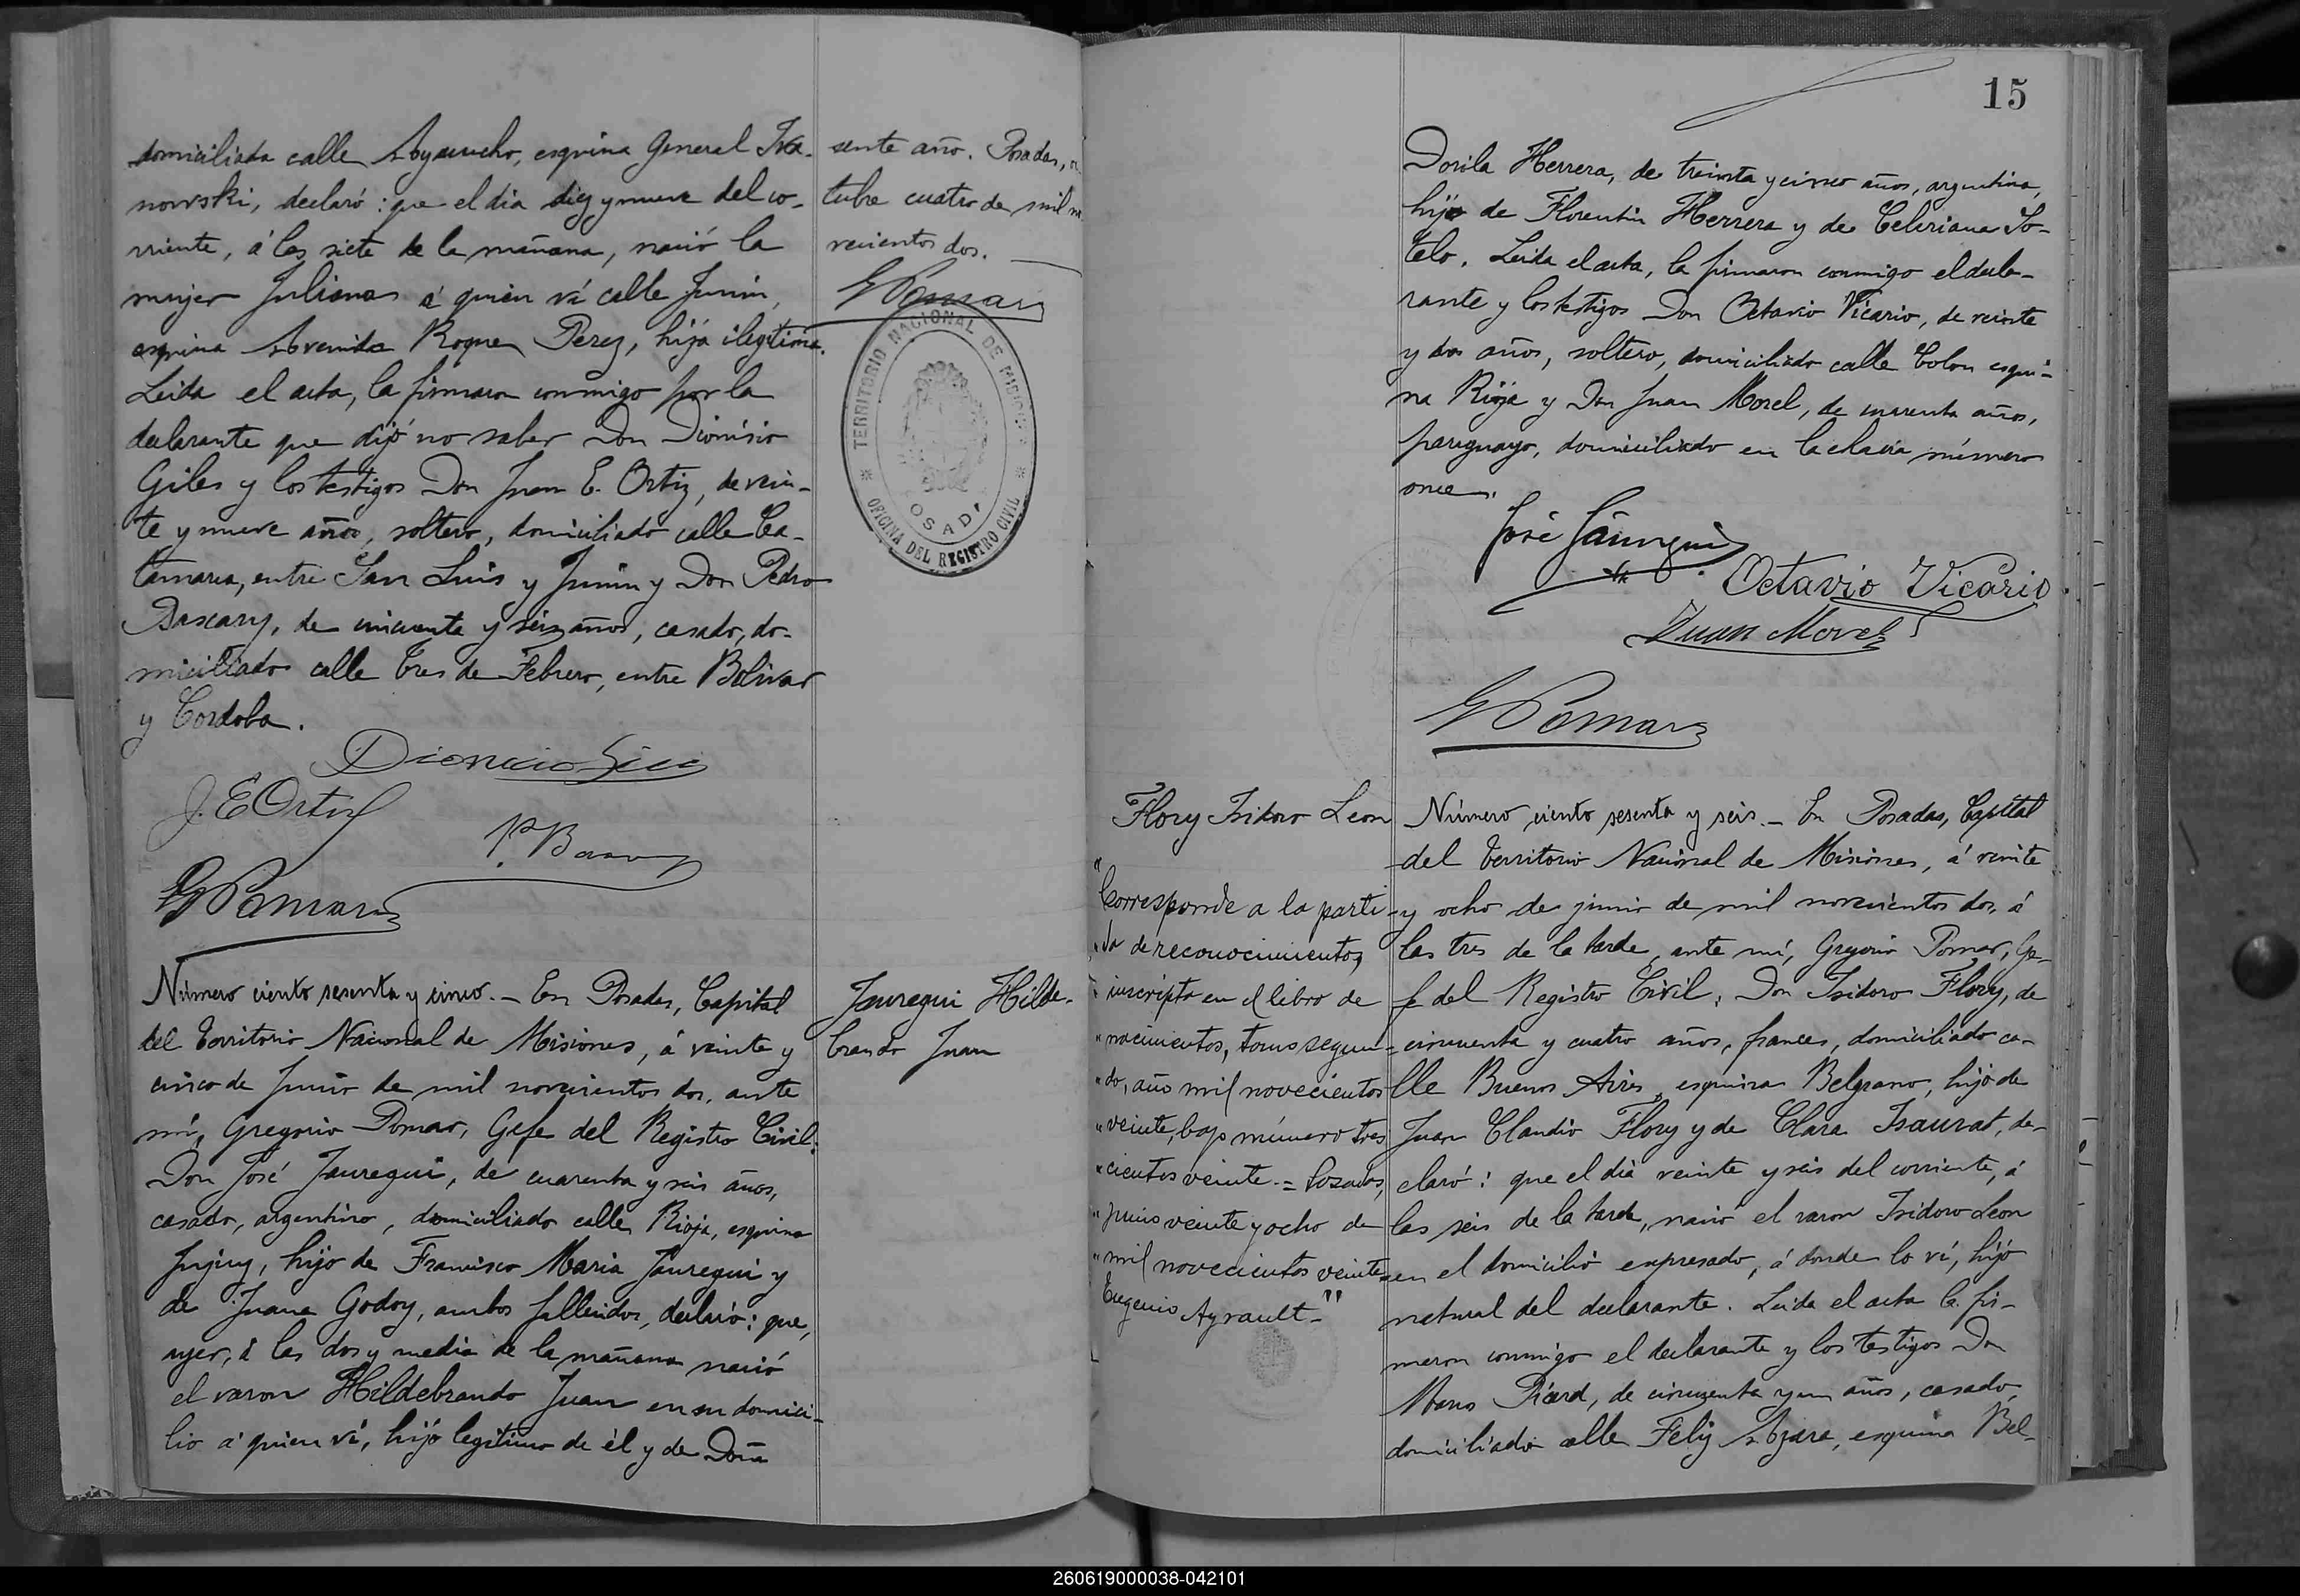 domiciliada calle Ayacucho, esquina General Iva-
nowski, declaró: que el dia diez y nueve del co-
rriente, á las siete de la mañana, nació la
mujer Juliana á quien ví calle Junin,
esquina Avenida Roque Perez, hija ilegitima.
Leida el acta, la firmaron conmigo por la
declarante que dijó no saber Don Dionisio
Giles y los testigos Don Juan E. Ortiz, de vein-
te y nueve años, soltero, domiciliado calle Ca-
tamarca, entre San Luis y Junin y Don Pedro
Bascary, de cincuenta y seis años, casado, do-
miciliado calle Tres de Febrero, entre Bolivar
y Cordoba.
J. E Ortiz
G Pomar
Número ciento sesenta y cinco. - En Posadas, Capital
del Territorio Nacional de Misiones, á veinte y
cinco de Junio de mil novecientos dos, ante
mí, Gregorio Pomar, Gefe del Registro Civil:
Don José Jauregui, de cuarenta y seis años,
casado, argentino, domiciliado calle Rioja, esquina
Jujuy, hijo de Francisco Maria Jauregui y
de Juana Godoy, ambos fallecidos, declaró: que,
ayer, á las dos y media de la mañana nació
el varon Hildebrando Juan en su domici-
lio á quien ví, hijo legitimo de él y de Doña
sente año. Posadas,
tubre cuatro de mil
vecientos dos.
G Pomar
TERRITORIO NACIONAL DE MISIONES
POSADAS
OFICINA DEL REGISTRO CIVIL
Jauregui Hilde-
brando Juan
15
Dorila Herrera, de treinta y cinco años, argentina,
hija de Florentin Herrera y de Celeriana So-
telo. Leida el acta, la firmaron conmigo el decla-
rante y los testigos Don Octavio Vicario, de veinte
y dos años, soltero, domiciliado calle Colon esqui-
na Rioja y Don Juan Morel, de cuarenta años,
paraguayo, domiciliado en la chacra número
once.
José Jáuregui
Octavio Vicario
Juan Morel
G Pomar
Flory Isidoro Leon
"Corresponde a la parti-
"da de reconocimientos,
"inscripta en el libro de
"nacimientos, tomo segun-
"do, año mil novecientos
"veinte, bajo número tres
"cientos veinte.= Posadas,
"junio veinte y ocho de
"mil novecientos veinte
Eugenio Ayrault-"
Número ciento sesenta y seis. - En Posadas, Capital
del Territorio Nacional de Misiones, á veinte
y ocho de junio de mil novecientos dos, á
las tres de la tarde, ante mí, Gregorio Pomar, Ge-
fe del Registro Civil; Don Isidoro Flory, de
cincuenta y cuatro años, frances, domiciliado ca-
lle Buenos Aires, esquina Belgrano, hijo de
Juan Claudio Flory y de Clara Isaurat, de-
claró: que el dia veinte y seis del corriente, á
las seis de la tarde, nació el varon Isidoro Leon
en el domicilio expresado, á donde lo ví, hijo
natural del declarante. Leida el acta la fir-
maron conmigo el declarante y los testigos Don
Picard, de cincuenta y un años, casado,
domiciliado calle Feliz Azara, esquina Bel-
260619000038-042101